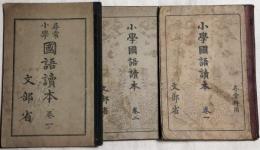 尋常
小學
國語讀本
卷一
文部省
小學國語讀本
卷二
文部省
小學國語讀本
卷一
尋常科用